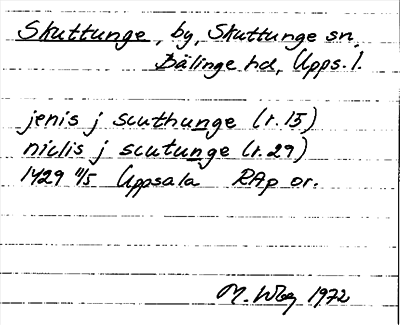 Skuttunge, by, Skuttunge sn,
Bälinge hd, Upps. l.
jenis j scuthunge (r. 15)
niclis j scutunge (r. 29)
1429 11/5 Uppsala RAp or.
M. Wbg 1972